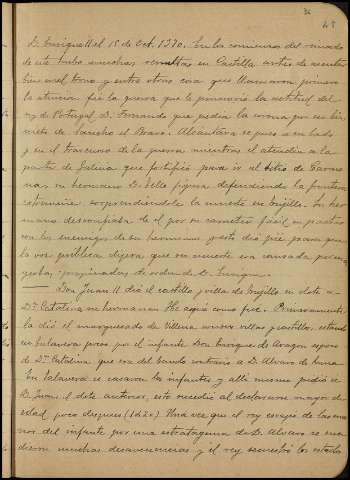 48
D. Enrique II el 18 de Oct. 1370. En los comienzos del reinado
de este hubo muchas revueltas en Castilla antes de asentar
bien el trono y entre otras cosas que llamaron primero
la atencion fue la guerra que le promovió la actitud del
rey de Portugal D. Fernando que pedia la corona por ser bis-
nieto de Sancho el Bravo. Alcantara se puso a su lado
y en el trascurso de la guerra mientras el atendia a la
parte de Galicia que fortificó para ir al sitio de Carmo-
na, su hermano D. Tello figura defendiendo la frontera
estremeña sorprendiendole la muerte en Trujillo. Su her-
mano desconfiaba de el por su caracter facil en pactar
con los enemigos de su hermano y esto dió pié para que
la voz publica dijera que su muerte era causada por
yerbas, propinadas de orden de D. Enrique.
Don Juan II dió el castillo y villa de Trujillo en dote a
Dª Catalina su hermana. He aqui como fué. Primeramente
la dió el marquesado de Villena con sus villas y castillos, estando
en Talavera preso por el infante Don Enrique de Aragon esposo
de Dª Catalina que era del bando contrario a D. Alvaro de Luna.
En Talavera se casaron los infantes y alli mismo pedia se
D. Juan el dote anterior, esto sucedió al declararse mayor de
edad poco despues (1420). Una vez que el rey escapó de las ma-
nos del infante por una estratagema de D. Alvaro se suce-
dieron muchas desavenencias y el rey secuestró los estados